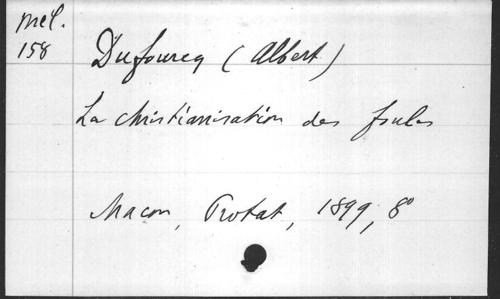 Mél.
158
Dufourcq (Albert)
La christianisation des foules
Macon, Protat, 1899, 8°